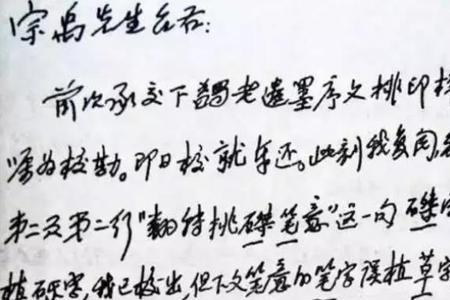 宗禹先生台右:
前次承交下謁老遺墨序文排印
嘱为校勘。即日校就奉还。此刻我复阅
第二及第二行"翻特挑磔笔意"这一句磔字
植砾字,我已校出,但下文笔意的笔字误植草字